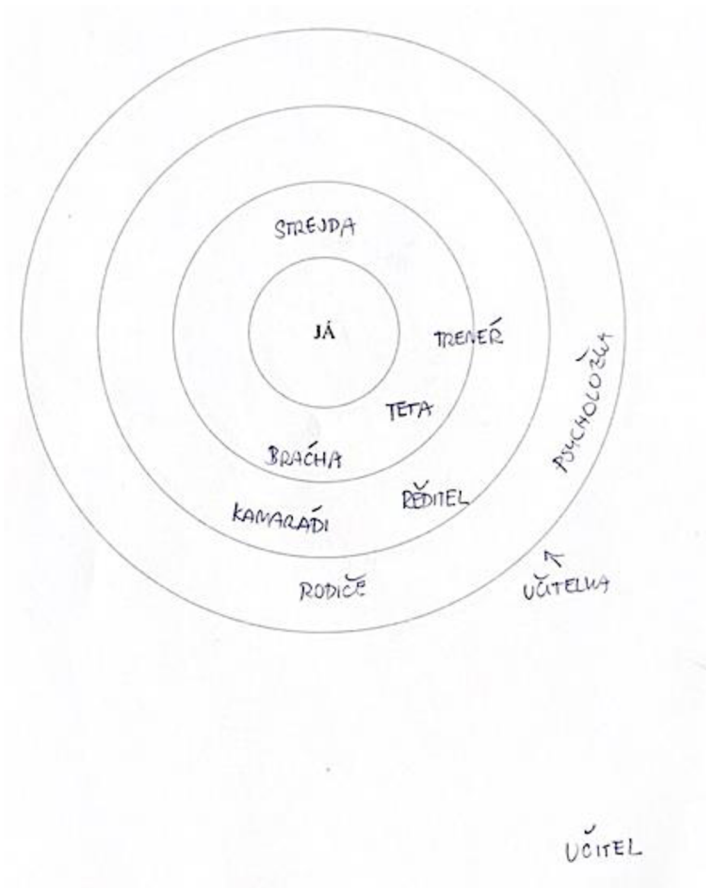 STREJDA
JÁ
TRENÉR
TETA
BRÁCHA
ŘEDITEL
KAMARÁDI
PSYCHOLOŽKA
RODIČE
UČITELKA
UČITEL